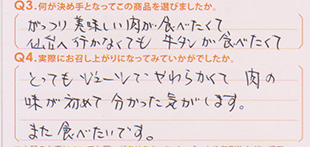 Q3.何が決め手となってこの商品を選びましたか。
がっつり美味しい肉が食べたくて
仙台へ行かなくても牛タンが食べたくて
Q4.実際にお召し上がりになってみていかがでしたか。
とってもジューシーでやわらかくて 肉の
味が初めて分かった気がします。
また食べたいです。